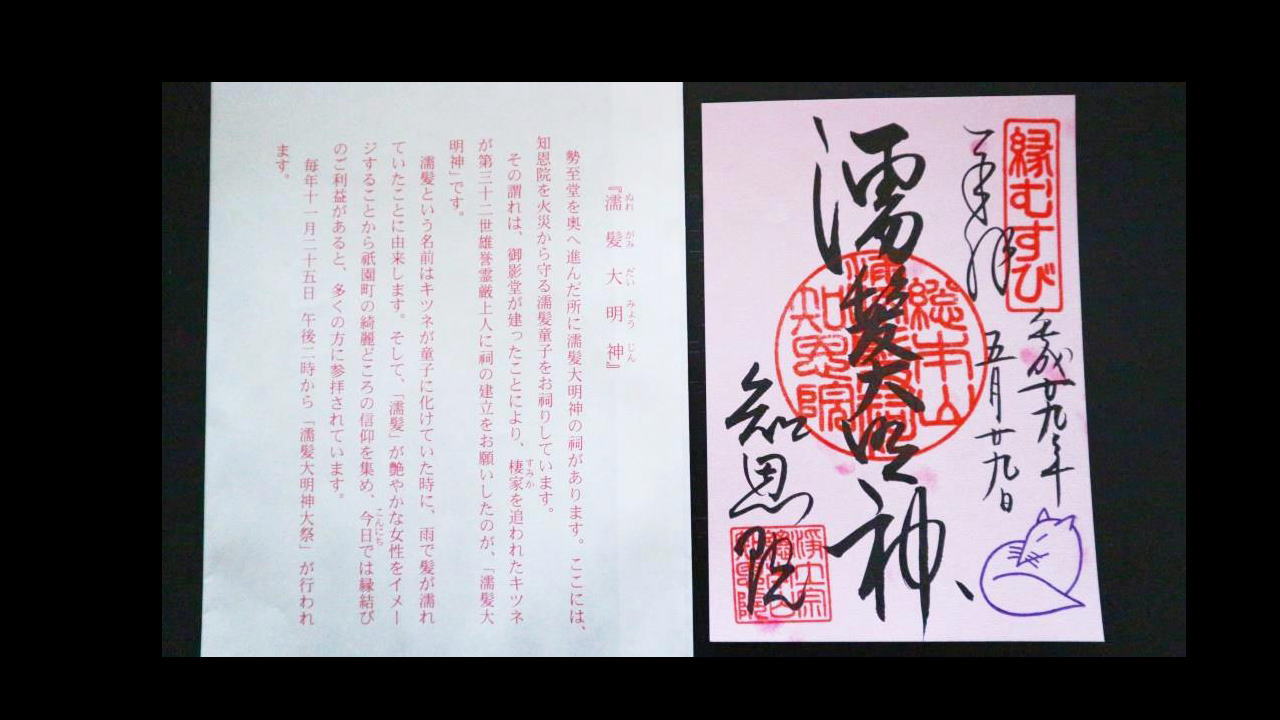 縁むすび
奉拝
平成廿九年
五月廿九日
濡髪大明神
総本山
知恩院
知恩院
浄土宗
『濡髪大明神』
ぬれがみだいみょうじん
勢至堂を奥へ進んだ所に濡髪大明神の祠があります。ここには、
知恩院を火災から守る濡髪童子をお祀りしています。
その謂れは、御影堂が建ったことにより、棲家を追われたキツネ
すみか
が第三十二世雄誉霊巌上人に祠の建立をお願いしたのが、「濡髪大
明神」です。
濡髪という名前はキツネが童子に化けていた時に、雨で髪が濡れ
ていたことに由来します。そして、「濡髪」が艶やかな女性をイメー
ジすることから祇園町の綺麗どころの信仰を集め、今日では縁結び
こんにち
のご利益があると、多くの方に参拝されています。
毎年十一月二十五日 午後二時から「濡髪大明神大祭」が行われ
ます。